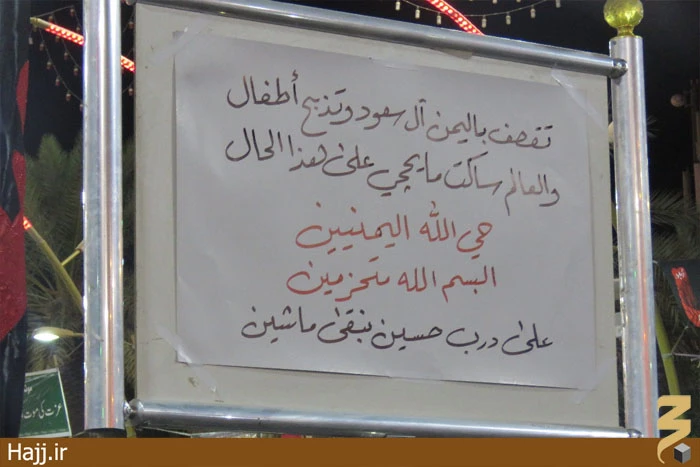 تقصف باليمن آل سعود وتذبح أطفال
والعالم ساكت ما يحچي على هذا الحال
حي الله اليمنيين
البسم الله متحزمين
على درب حسين نبقى ماشين
عزت کی موت
Hajj.ir